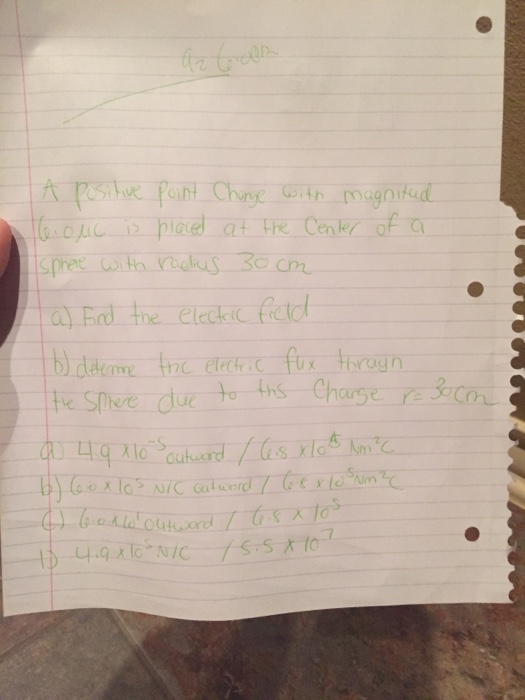 A positive point Charge with magnitud
6.0 μC is placed at the Center of a
sphere with radius 30 cm
a) Find the electric field
b) determe the electric flux thraygn
the Sphere due to ths Charge r= 30cm
a) 4.9 x10⁻⁵ outward / 6.8 x10⁵ Nm²C
b) 6.0 x 10⁵ N/C outword / 6.8 x 10⁵ Nm²C
C) 6.0 x 10¹ outward / 6.8 x 10⁵
D) 4.9 x 10⁵ N/C / 5.5 x 10⁷